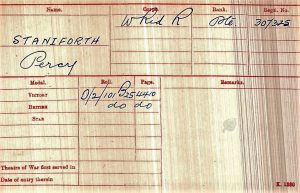 Name. Corps. Rank. Regtl. No.
W Rid R Pte. 307325
STANIFORTH
Percy
Medal. Roll. Page. Remarks.
VICTORY O/2/101B25 4410
BRITISH do do
STAR
Theatre of War first served in
Date of entry therein
K. 1380